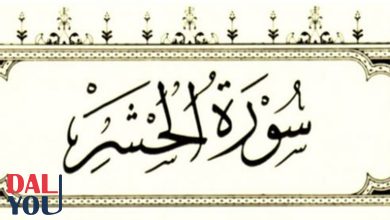 سُورَةُ الحَشْرِ
DAL
YOU